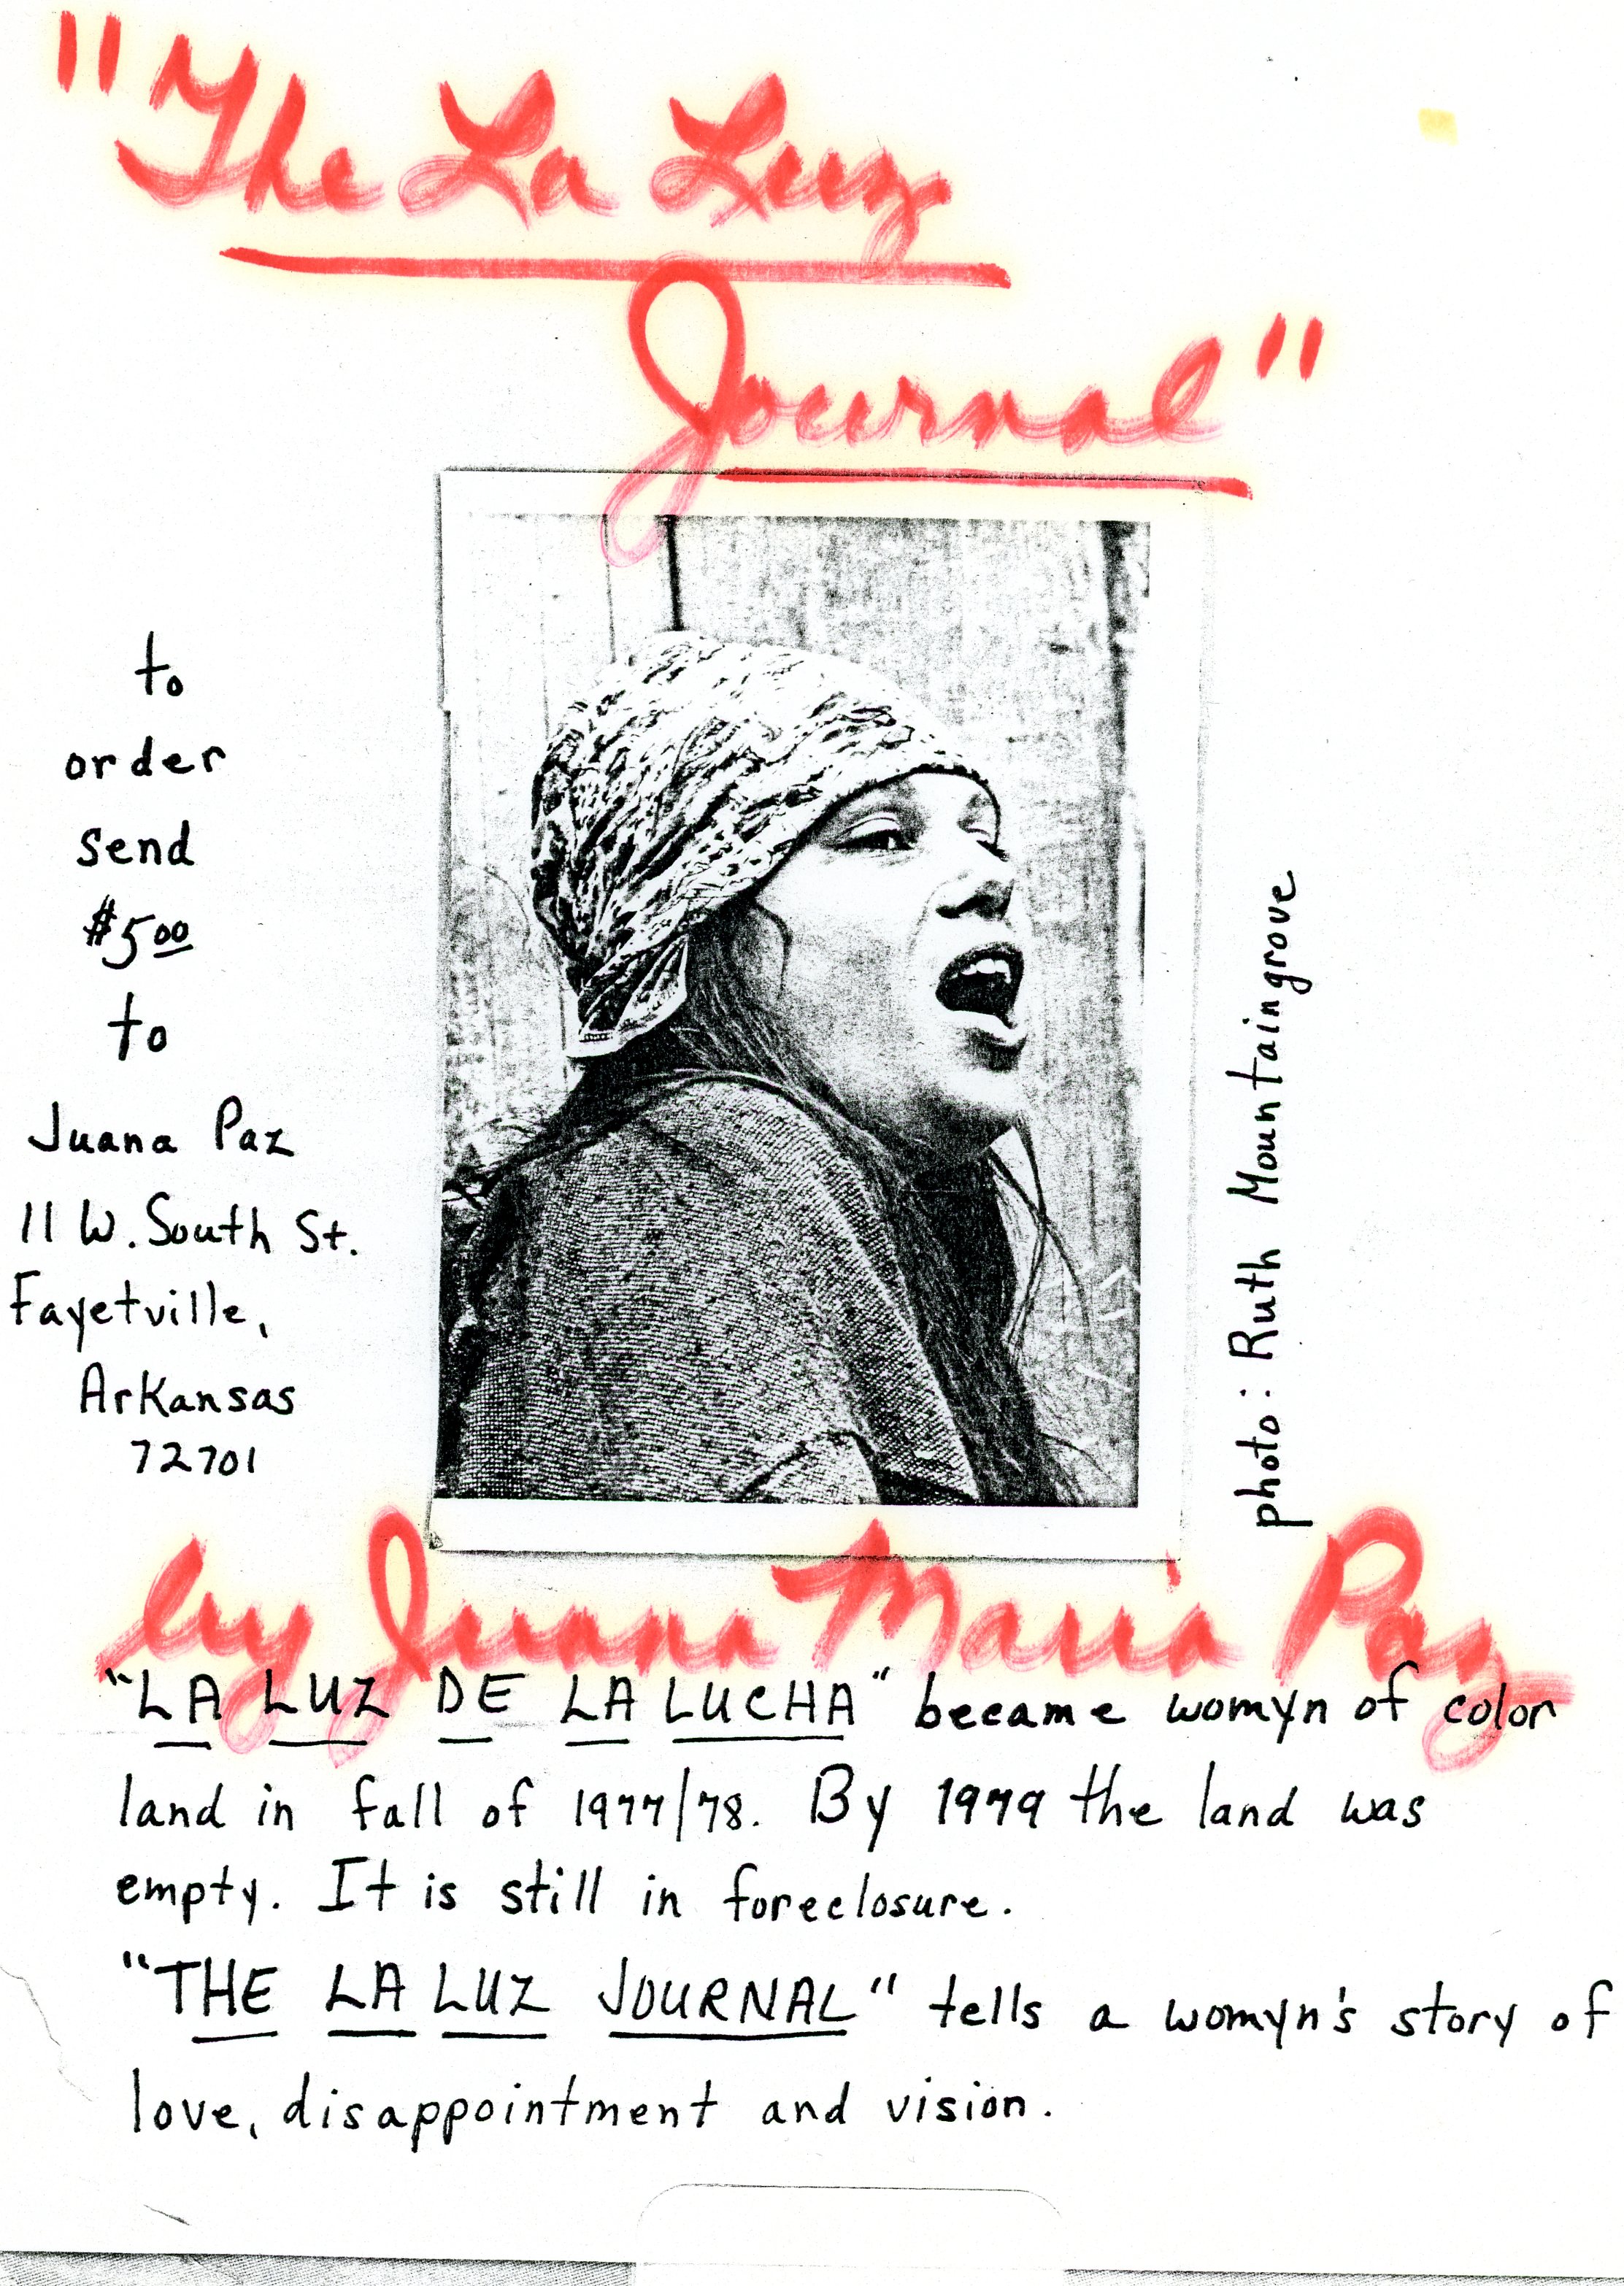 "The La Luz
Journal"
to
order
send
$5.00
to
Juana Paz
11 W. South St.
Fayetville,
Arkansas
72701
photo: Ruth Mountaingrove
by Juana Maria Paz
"LA LUZ DE LA LUCHA" became womyn of color
land in fall of 1977/78. By 1979 the land was
empty. It is still in foreclosure.
"THE LA LUZ JOURNAL" tells a womyn's story of
love, disappointment and vision.